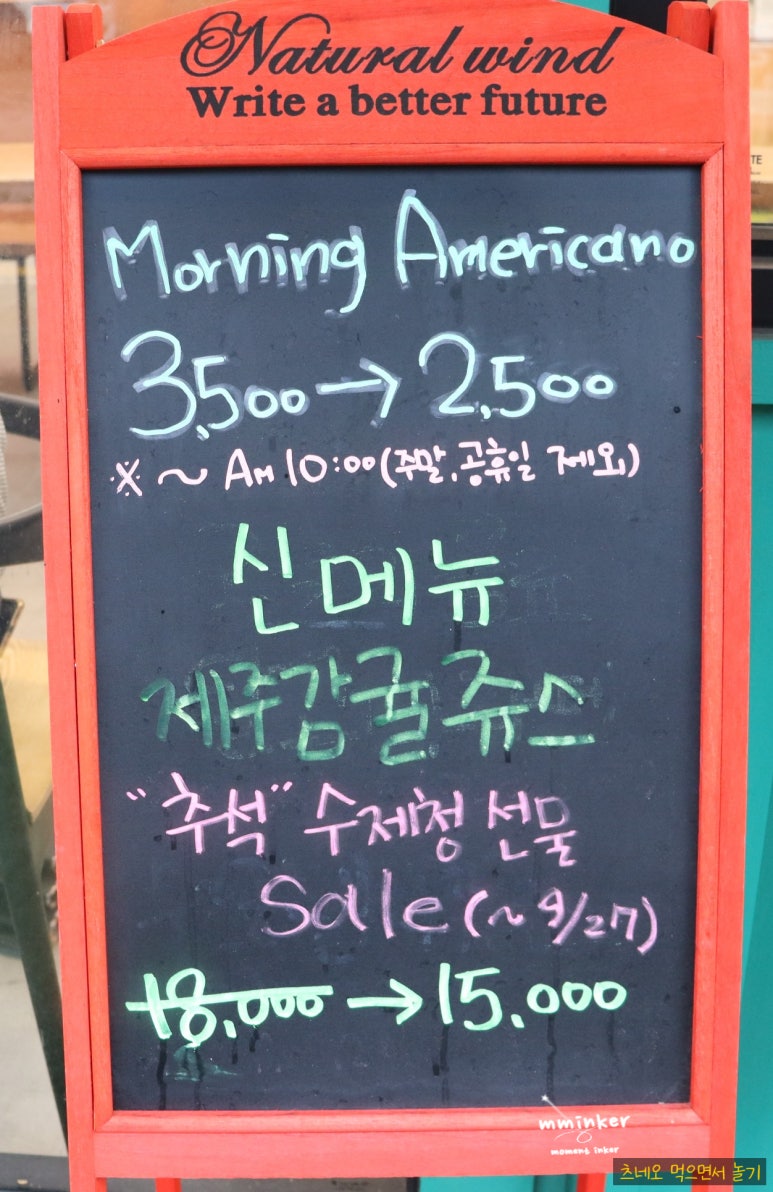 Natural wind
Write a better future
Morning Americano
3,500 → 2,500
※ ~ AM 10:00 (주말, 공휴일 제외)
신메뉴
제주감귤쥬스
"추석" 수제청 선물
Sale (~ 9/27)
18,000 → 15,000
mminker
moment inker
츠네오 먹으면서 놀기